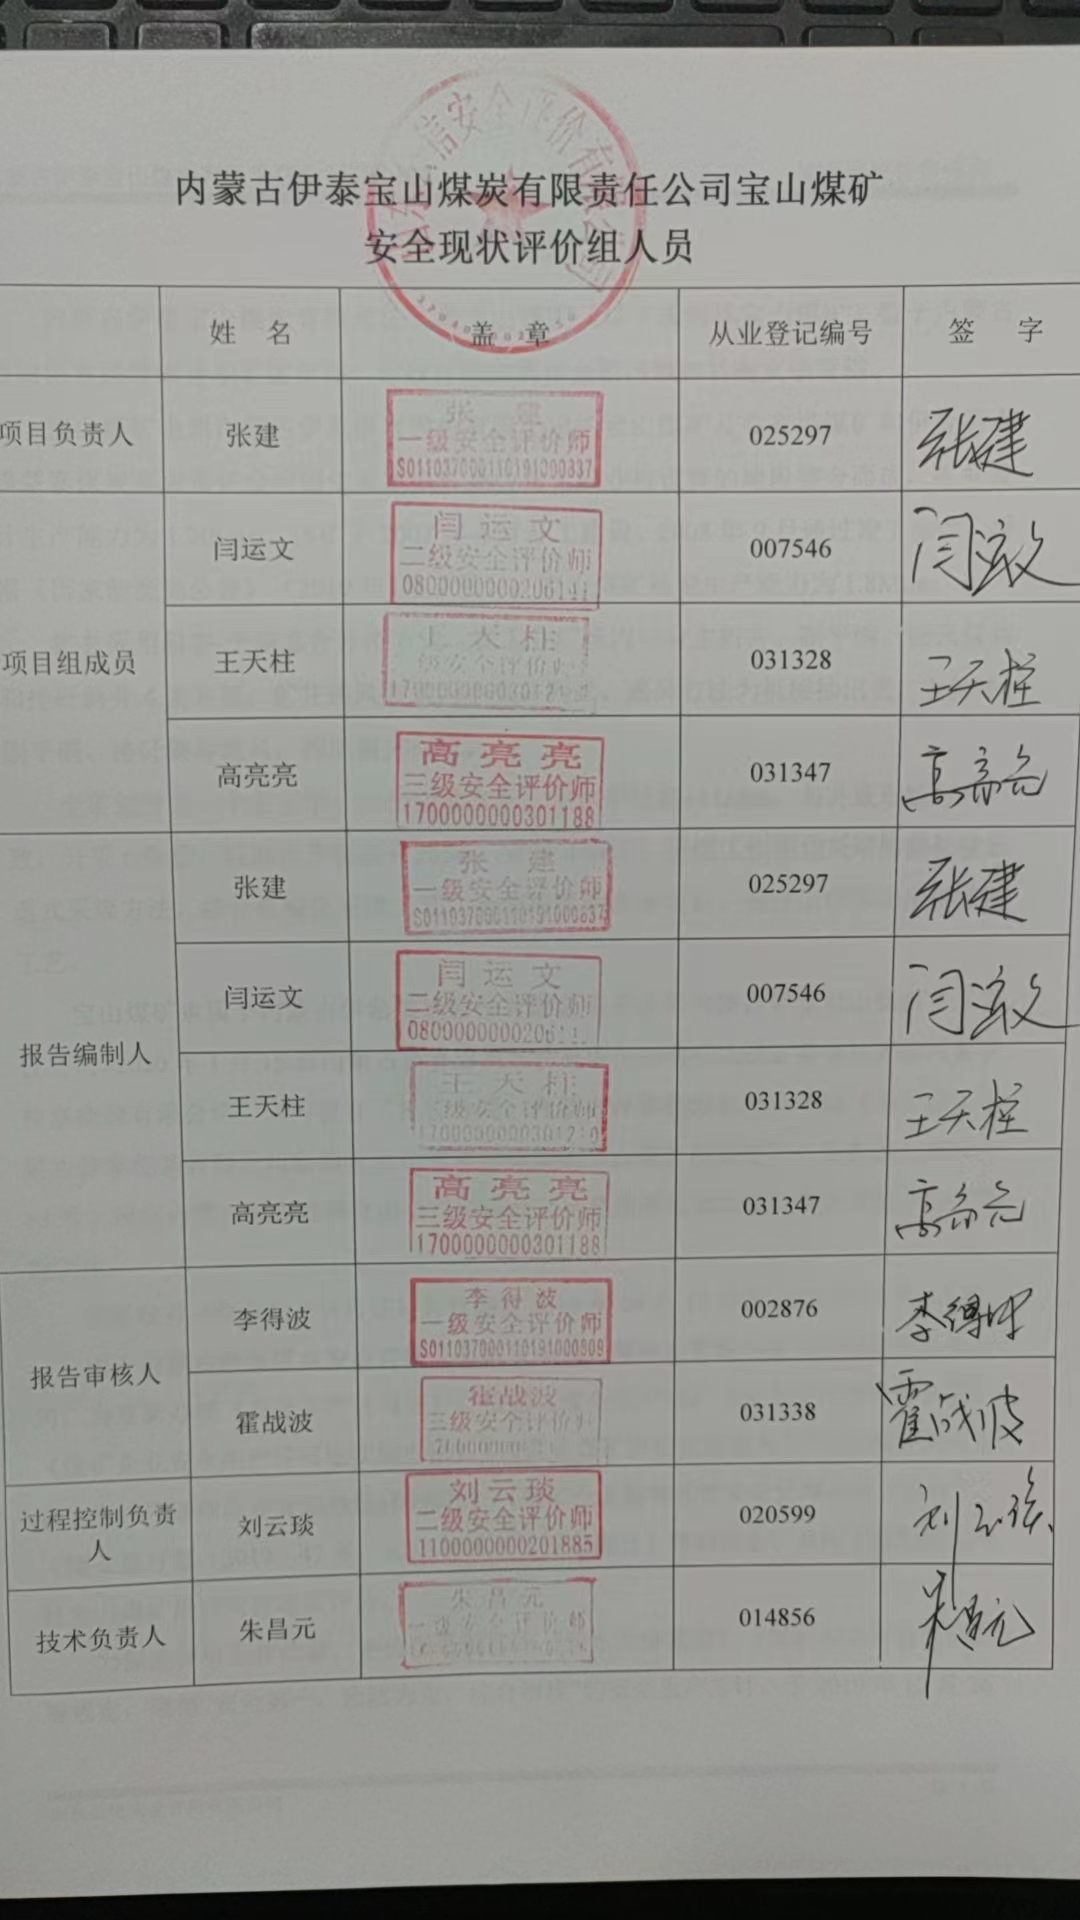 内蒙古伊泰宝山煤炭有限责任公司宝山煤矿
安全现状评价组人员
姓 名 盖 章 从业登记编号 签 字
项目负责人 张建 张 建 025297 张建
一级安全评价师
S011037000110191000337
闫运文 闫 运 文 007546 闫运文
二级安全评价师
项目组成员 王天柱 王 天 柱 031328 王天柱
级安全评价师
高亮亮 高 亮 亮 031347 高亮亮
三级安全评价师
1700000000301188
报告编制人 张建 张 建 025297 张建
一级安全评价师
S011037000110191000337
闫运文 闫 运 文 007546 闫运文
二级安全评价师
王天柱 王 天 柱 031328 王天柱
级安全评价师
高亮亮 高 亮 亮 031347 高亮亮
三级安全评价师
1700000000301188
报告审核人 李得波 李 得 波 002876 李得波
一级安全评价师
S011037000110191000809
霍战波 霍战波 031338 霍战波
三级安全评价师
过程控制负责人 刘云琰 刘云琰 020599 刘云琰
二级安全评价师
1100000000201885
技术负责人 朱昌元 朱 昌 元 014856 朱昌元
一级安全评价师